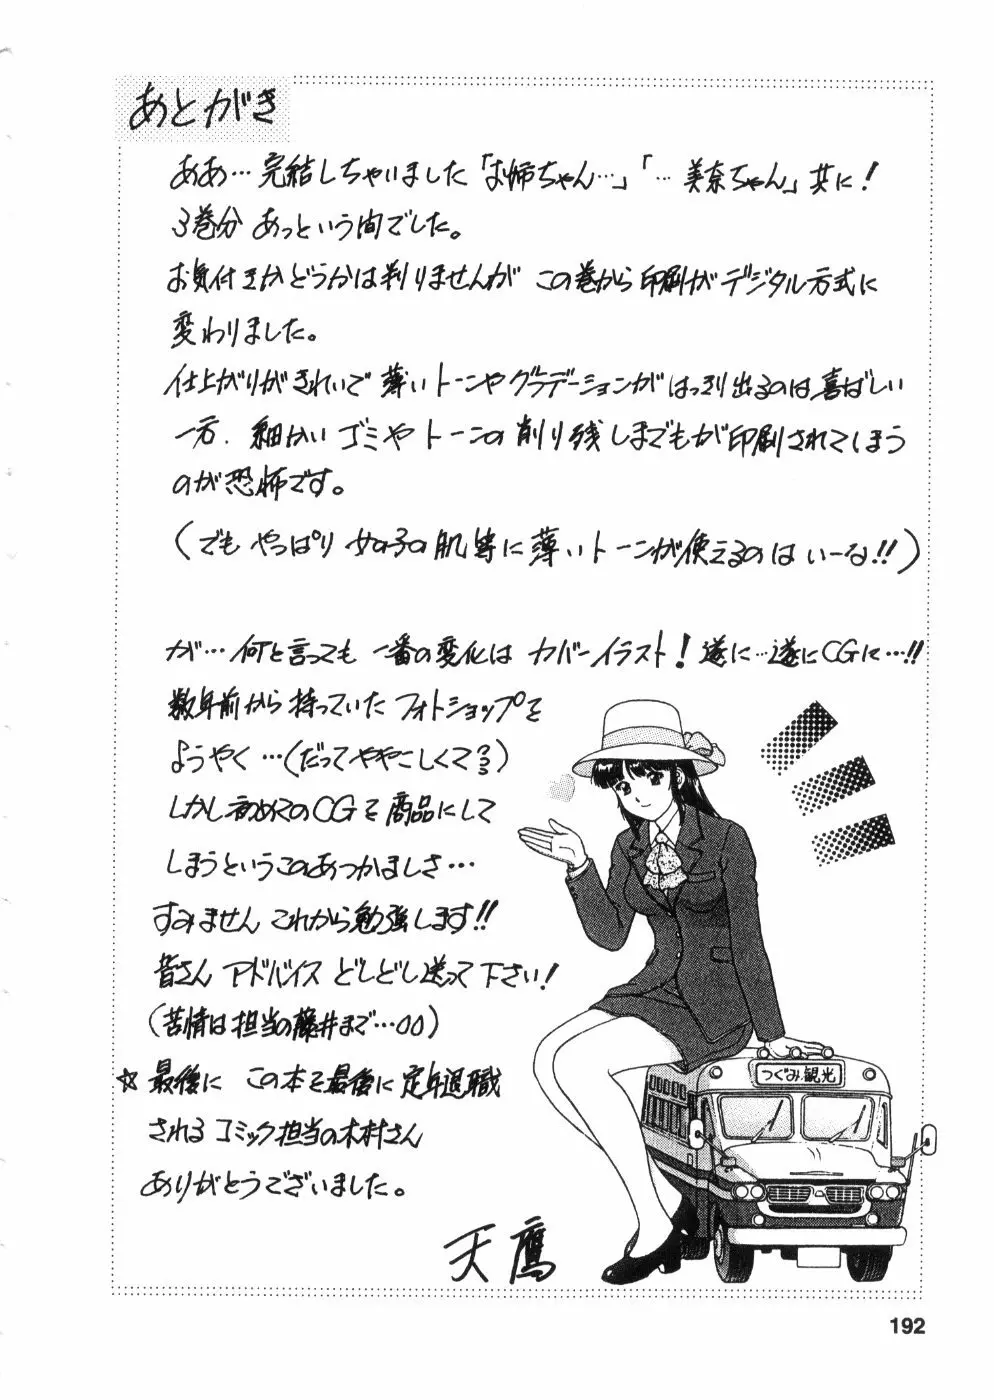 あとがき
ああ…完結しちゃいました「お姉ちゃん…」「…美奈ちゃん」共に!
3巻分 あっという間でした。
お気付きかどうかは判りませんが この巻から印刷がデジタル方式に
変わりました。
仕上がりがきれいで 薄いトーンやグラデーションがはっきり出るのは喜ばしい
一方、細かいゴミやトーンの削り残しまでもが印刷されてしまう
のが恐怖です。
(でも やっぱり 女の子の肌等に薄いトーンが使えるのは いーな!!)
が…何と言っても 一番の変化は カバーイラスト! 遂に…遂にCGに…!!
数年前から持っていたフォトショップを
ようやく…(だってややこしくて??)
しかし初めてのCGを商品にして
しまうというこのあつかましさ…
すみません これから勉強します!!
皆さん アドバイス どしどし送って下さい!
(苦情は担当の藤井まで…○○)
☆最後に この本を最後に定年退職
されるコミック担当の木村さん
ありがとうございました。
天鷹
つぐみ観光
192